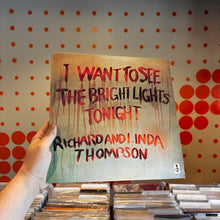 I WANT TO SEE
THE BRIGHT LIGHTS
TONIGHT
RICHARD AND LINDA
THOMPSON